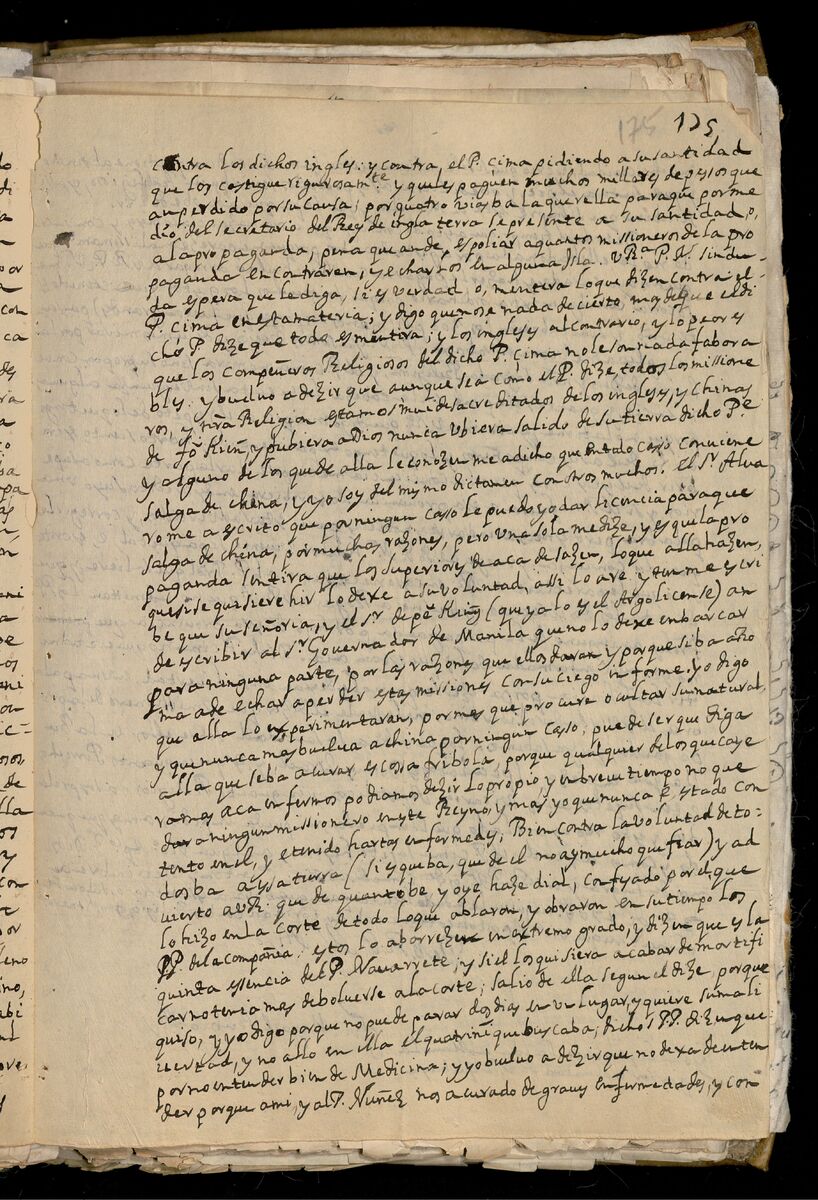 175 175
contra los dichos ingles: y contra, el P. cima pidiendo a su santidad
que los castigue rigurosamte. y que les paguen muchos millares de pesos que
an perdido por su causa; por quatro vias ba la querella para que por me
dio, del secretario del Rey de ingla terra se presente a su santidad, o,
a la propaganda, pena que an de, espoliar a quantos missioneros de la pro
paganda encontraren, y echarlos en alguna Isla. VRa. P. N. sin du-
da espera que le diga, si es verdad, o, mentira lo que dizen contra el
P. cima en esta materia; y digo que no se nada de cierto, mas de que el di
cho P. dize que todo es mentira; y los ingleses al contrario, y lo peor es
que los compañeros Religiosos del dicho P. cima no le son nada fabora
bles. y buelvo a dezir que aunque sea como el P. dize, todos los missione
ros, y nra Religion estamos mui desacreditados de los ingleses, y chinas
de fo Kien, y pubiera a Dios nunca ubiera salido de su tierra dicho Pe
y alguno de los que de alla le conozen me a dicho que en todo caso conviene
salga de china, y yo soy del mismo dictamen con otros muchos. el sr. Alva
ro me a escrito que por ningun caso le puedo yo dar licencia para que
salga de china, por muchas razones, pero una sola me dize, y es que la pro
paganda sintira que los superiores de aca desazen, lo que alla hazen,
que si se quisiere hir lo dexe a su voluntad, assi lo are y tun me escri
be que su señoria, y el sr. de pe King (que ya lo es el Argolicense) an
de escribir al sr. Governador de Manila que no lo dexe embarcar
para ninguna parte, por las razones que ellos daran y porque si ba a Ro
ma a de echar a perder estas missiones con su ciego informe. yo digo
que alla lo experimentaran, por mas que procure ocultar su natural,
y que nunca mas buelva a china por ningun caso, puede ser que diga
alla que se ba a curar es cosa fribola, porque qualquier de los que caye
ramos aca enfermos podiamos dezir lo propio, y en breve tiempo no que
dara ningun missionero en este Reyno, y mas yo que nunca e estado con
tento en el, y e tenido hartas enfermedes; Bien contra la voluntad de to-
dos ba a yssa tierra (si es que ba, que de el no ay mucho que fiar) y ad
vierto a VR. que de quanto be y oye haze dial, confyado por el que
lo hizo en la corte de todo lo que ablaron, y obraron en su tiempo los
PP. de la compañia; estos lo aborrezen en extremo grado, y dizen que es la
quinta esencia del P. Navarrete; y si el los quisiera acabar de mortifi
car no tenia mas de bolverse a la corte; salio de ella segun el dize porque
quiso, y yo digo porque no puede parar dos dias en un lugar, y quiere su mali
vertad, y no allo en ella el quatrini que buscaba; dichos PP. dizen que
por no entender bien de Medicina; y yo buelvo a dezir que no dexa de enten
der porque a mi, y al P. Nuñez nos a curado de graves enfermedades, y con